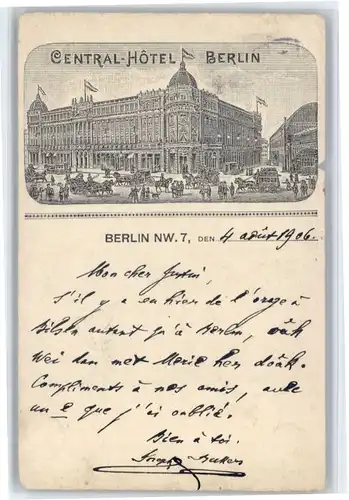 CENTRAL-HÔTEL BERLIN
BERLIN NW. 7, DEN 4 août 1906.
Mon cher
S'il y a eu hier de l'orage à
Bilsen autant qu'à Berlin,
Wei dan met Merie her doäk.
Compliments à nos amis, avec
un e que j'ai oublié.
Bien à toi.